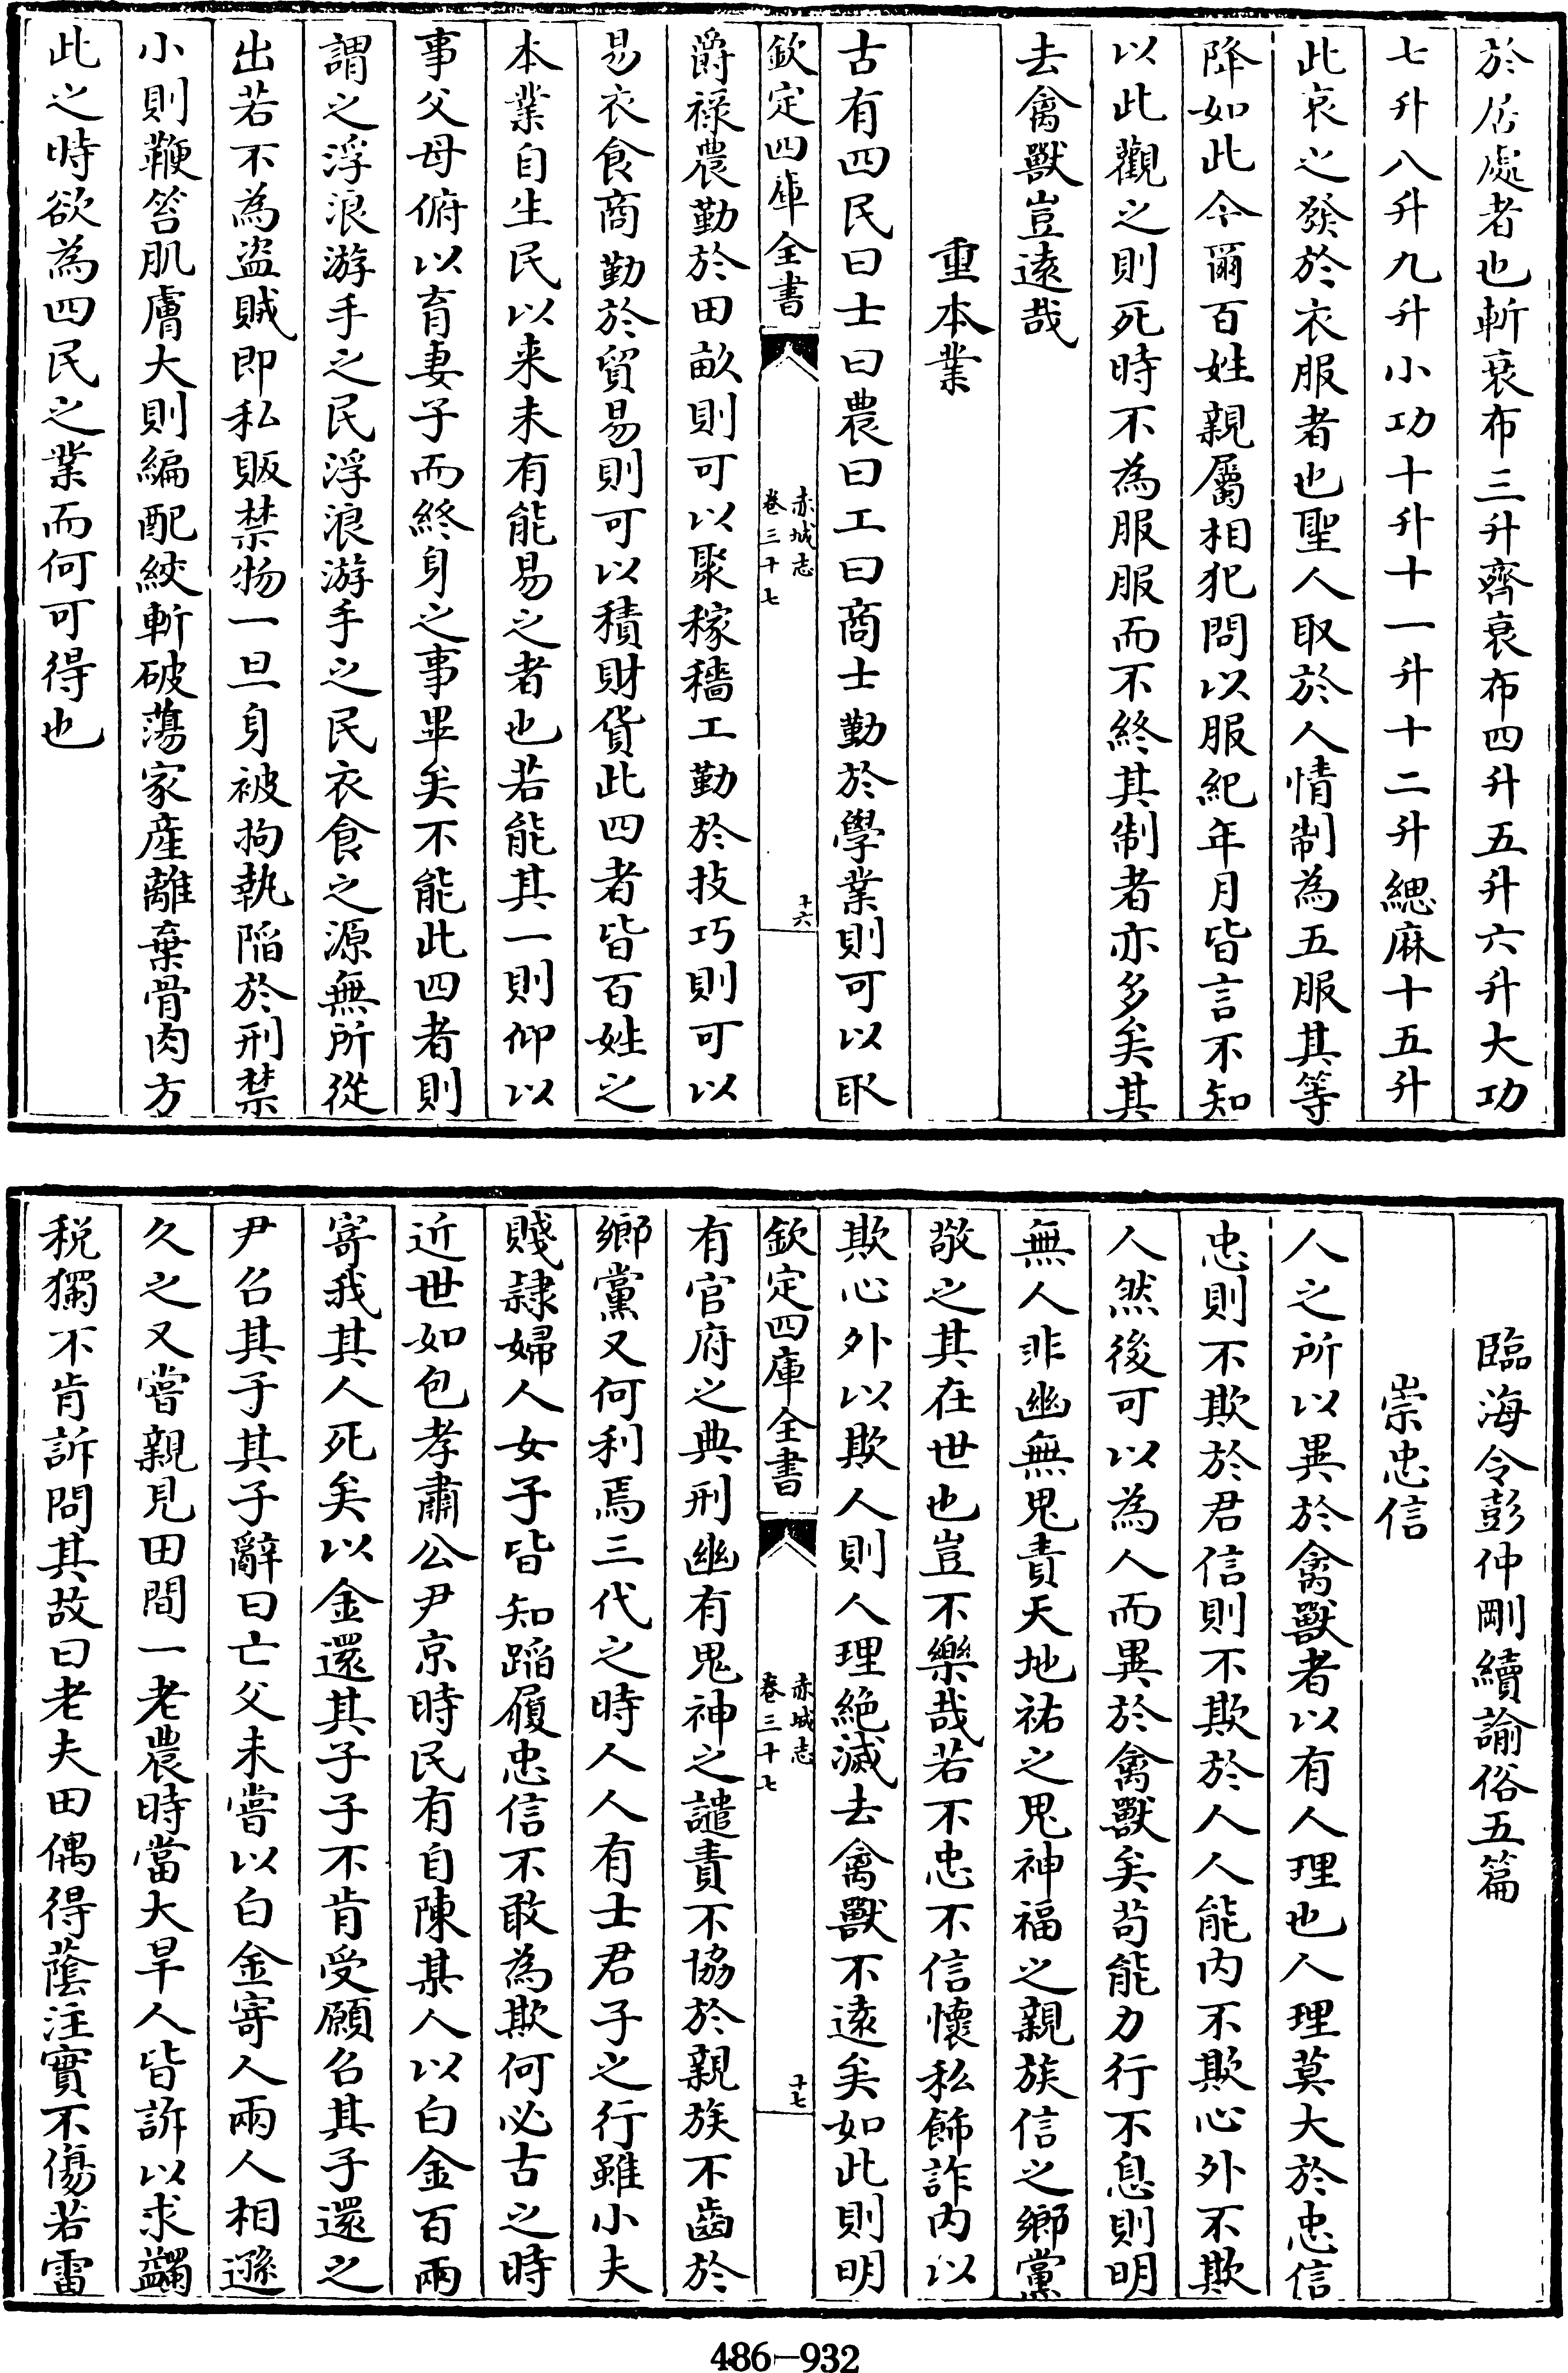 於居處者也斬衰布三升齊衰布四升五升六升大功
七升八升九升小功十升十一升十二升緦麻十五升
此哀之發於衣服者也聖人取於人情制為五服其等
降如此今爾百姓親屬相犯問以服紀年月皆言不知
以此觀之則死時不為服服而不終其制者亦多矣其
去禽獸豈遠哉
重本業
古有四民曰士曰農曰工曰商士勤於學業則可以取
欽定四庫全書
赤城志
卷三十七
十六
爵祿農勤於田畝則可以聚稼穡工勤於技巧則可以
易衣食商勤於貿易則可以積財貨此四者皆百姓之
本業自生民以来未有能易之者也若能其一則仰以
事父母俯以育妻子而終身之事畢矣不能此四者則
謂之浮浪游手之民浮浪游手之民衣食之源無所從
出若不為盜賊即私販禁物一旦身被拘執陷於刑禁
小則鞭笞肌膚大則編配絞斬破蕩家產離棄骨肉方
此之時欲為四民之業而何可得也
臨海令彭仲剛續諭俗五篇
崇忠信
人之所以異於禽獸者以有人理也人理莫大於忠信
忠則不欺於君信則不欺於人人能内不欺心外不欺
人然後可以為人而異於禽獸矣苟能力行不息則明
無人非幽無鬼責天地祐之鬼神福之親族信之鄉黨
敬之其在世也豈不樂哉若不忠不信懷私飾詐内以
欺心外以欺人則人理絶滅去禽獸不遠矣如此則明
欽定四庫全書
赤城志
卷三十七
十七
有官府之典刑幽有鬼神之譴責不協於親族不齒於
鄉黨又何利焉三代之時人人有士君子之行雖小夫
賤隷婦人女子皆知蹈履忠信不敢為欺何必古之時
近世如包孝肅公尹京時民有自陳某人以白金百兩
寄我其人死矣以金還其子子不肯受願召其子還之
尹召其子其子辭曰亡父未嘗以白金寄人兩人相遜
久之又嘗親見田間一老農時當大旱人皆訴以求蠲
税獨不肯訴問其故曰老夫田偶得蔭注實不傷若雷
486-932